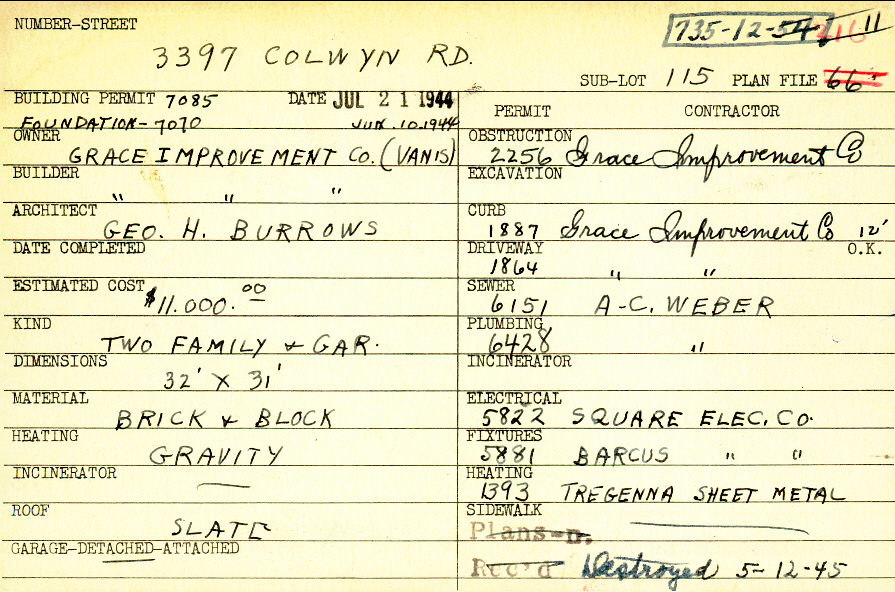 NUMBER-STREET
735-12-54 216 11
3397 COLWYN RD.
SUB-LOT 115 PLAN FILE 66
BUILDING PERMIT 7085 DATE JUL 21 1944
FOUNDATION-7070 JUL.10.1944
OWNER
GRACE IMPROVEMENT CO. (VANIS)
BUILDER
" " "
ARCHITECT
GEO. H. BURROWS
DATE COMPLETED
ESTIMATED COST
$11.000.00
KIND
TWO FAMILY & GAR.
DIMENSIONS
32' X 31'
MATERIAL
BRICK & BLOCK
HEATING
GRAVITY
INCINERATOR
—
ROOF
SLATE
GARAGE-DETACHED-ATTACHED
PERMIT CONTRACTOR
OBSTRUCTION
2256 Grace Improvement Co
EXCAVATION
CURB
1887 Grace Improvement Co 12'
DRIVEWAY O.K.
1864 " "
SEWER
6151 A-C. WEBER
PLUMBING
6428 "
INCINERATOR
ELECTRICAL
5822 SQUARE ELEC. CO.
FIXTURES
5881 BARCUS " "
HEATING
1393 TREGENNA SHEET METAL
SIDEWALK
Plans-n.
Rec'd Destroyed 5-12-45